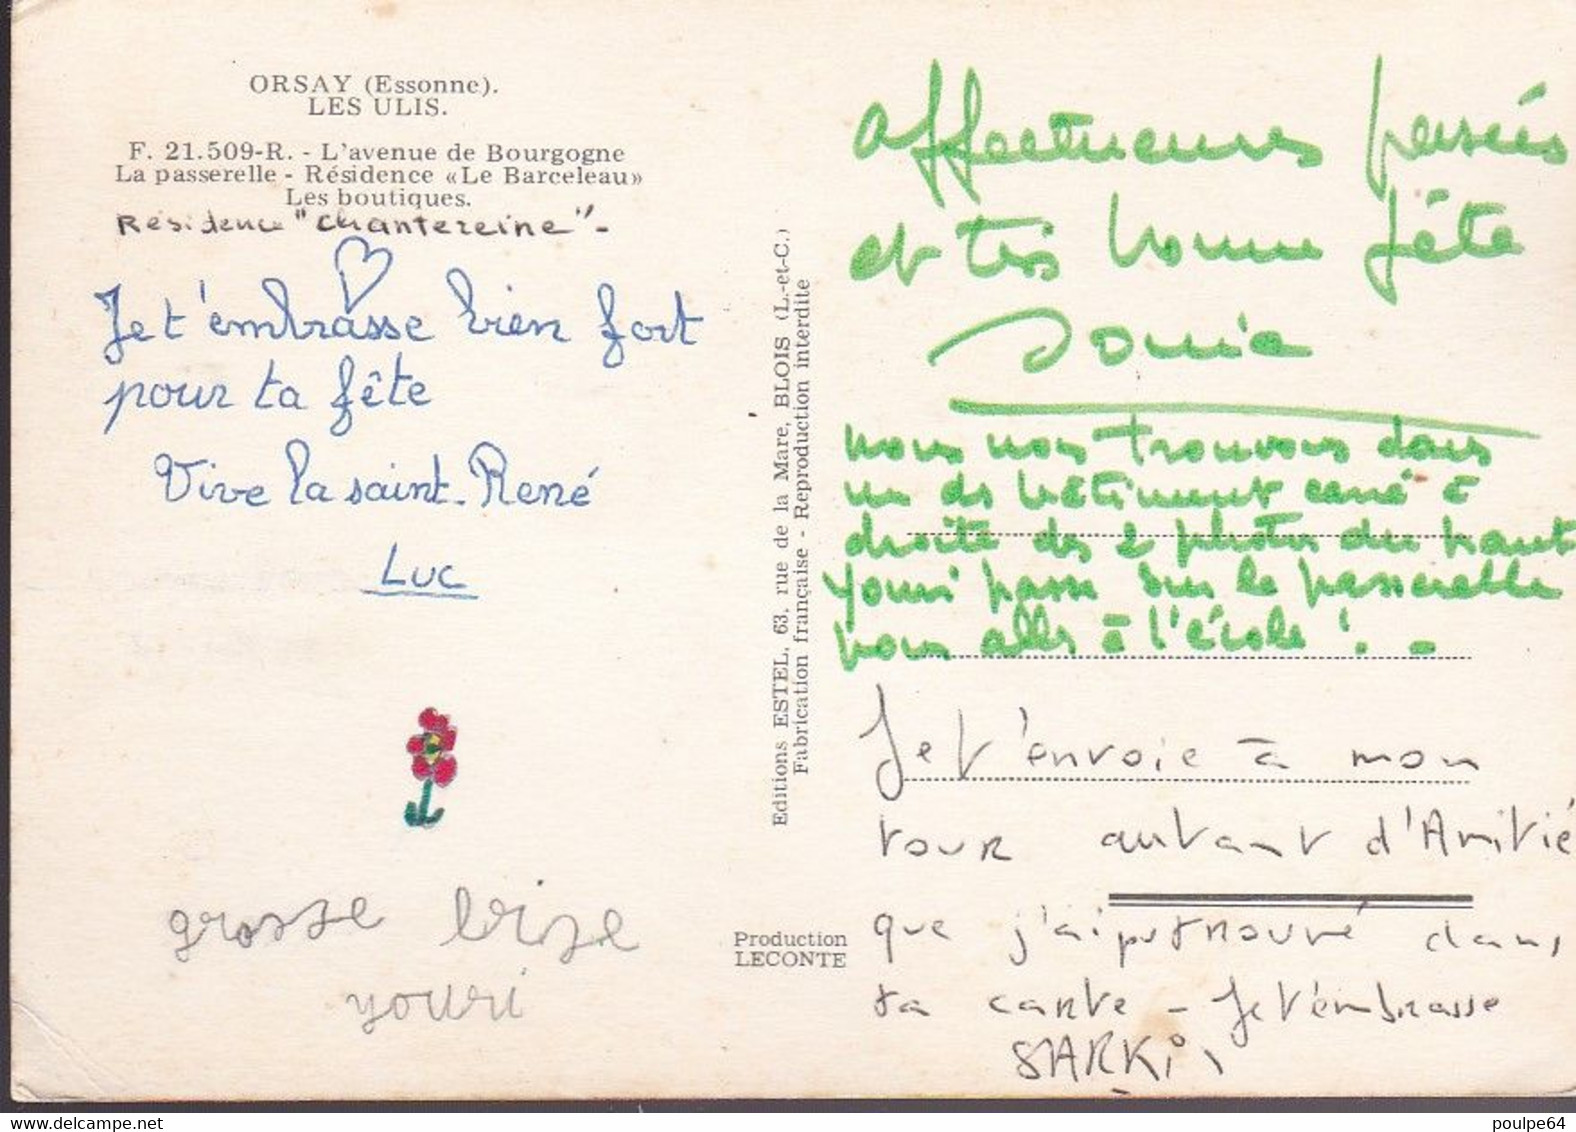 ORSAY (Essonne).
LES ULIS.
F. 21.509-R. - L'avenue de Bourgogne
La passerelle - Résidence «Le Barceleau»
Les boutiques.
Résidence "Chantereine" -
Je t'embrasse bien fort
pour ta fête
Vive la saint-René
Luc
grosse bise
youri
Editions ESTEL, 63, rue de la Mare, BLOIS (L.-et-C.)
Fabrication française - Reproduction interdite
Production
LECONTE
affectueuses pensées
et très bonne fête
Sonia
nous nous trouvons dans
un des bâtiment carré à
droite des 2 photos du haut
youri passe sur la passerelle
pour aller à l'école ! -
Je t'envoie à mon
tour autant d'Amitié
que j'ai pu trouvé dans
ta carte - Je t'embrasse
SARKis
www.delcampe.net
poulpe64